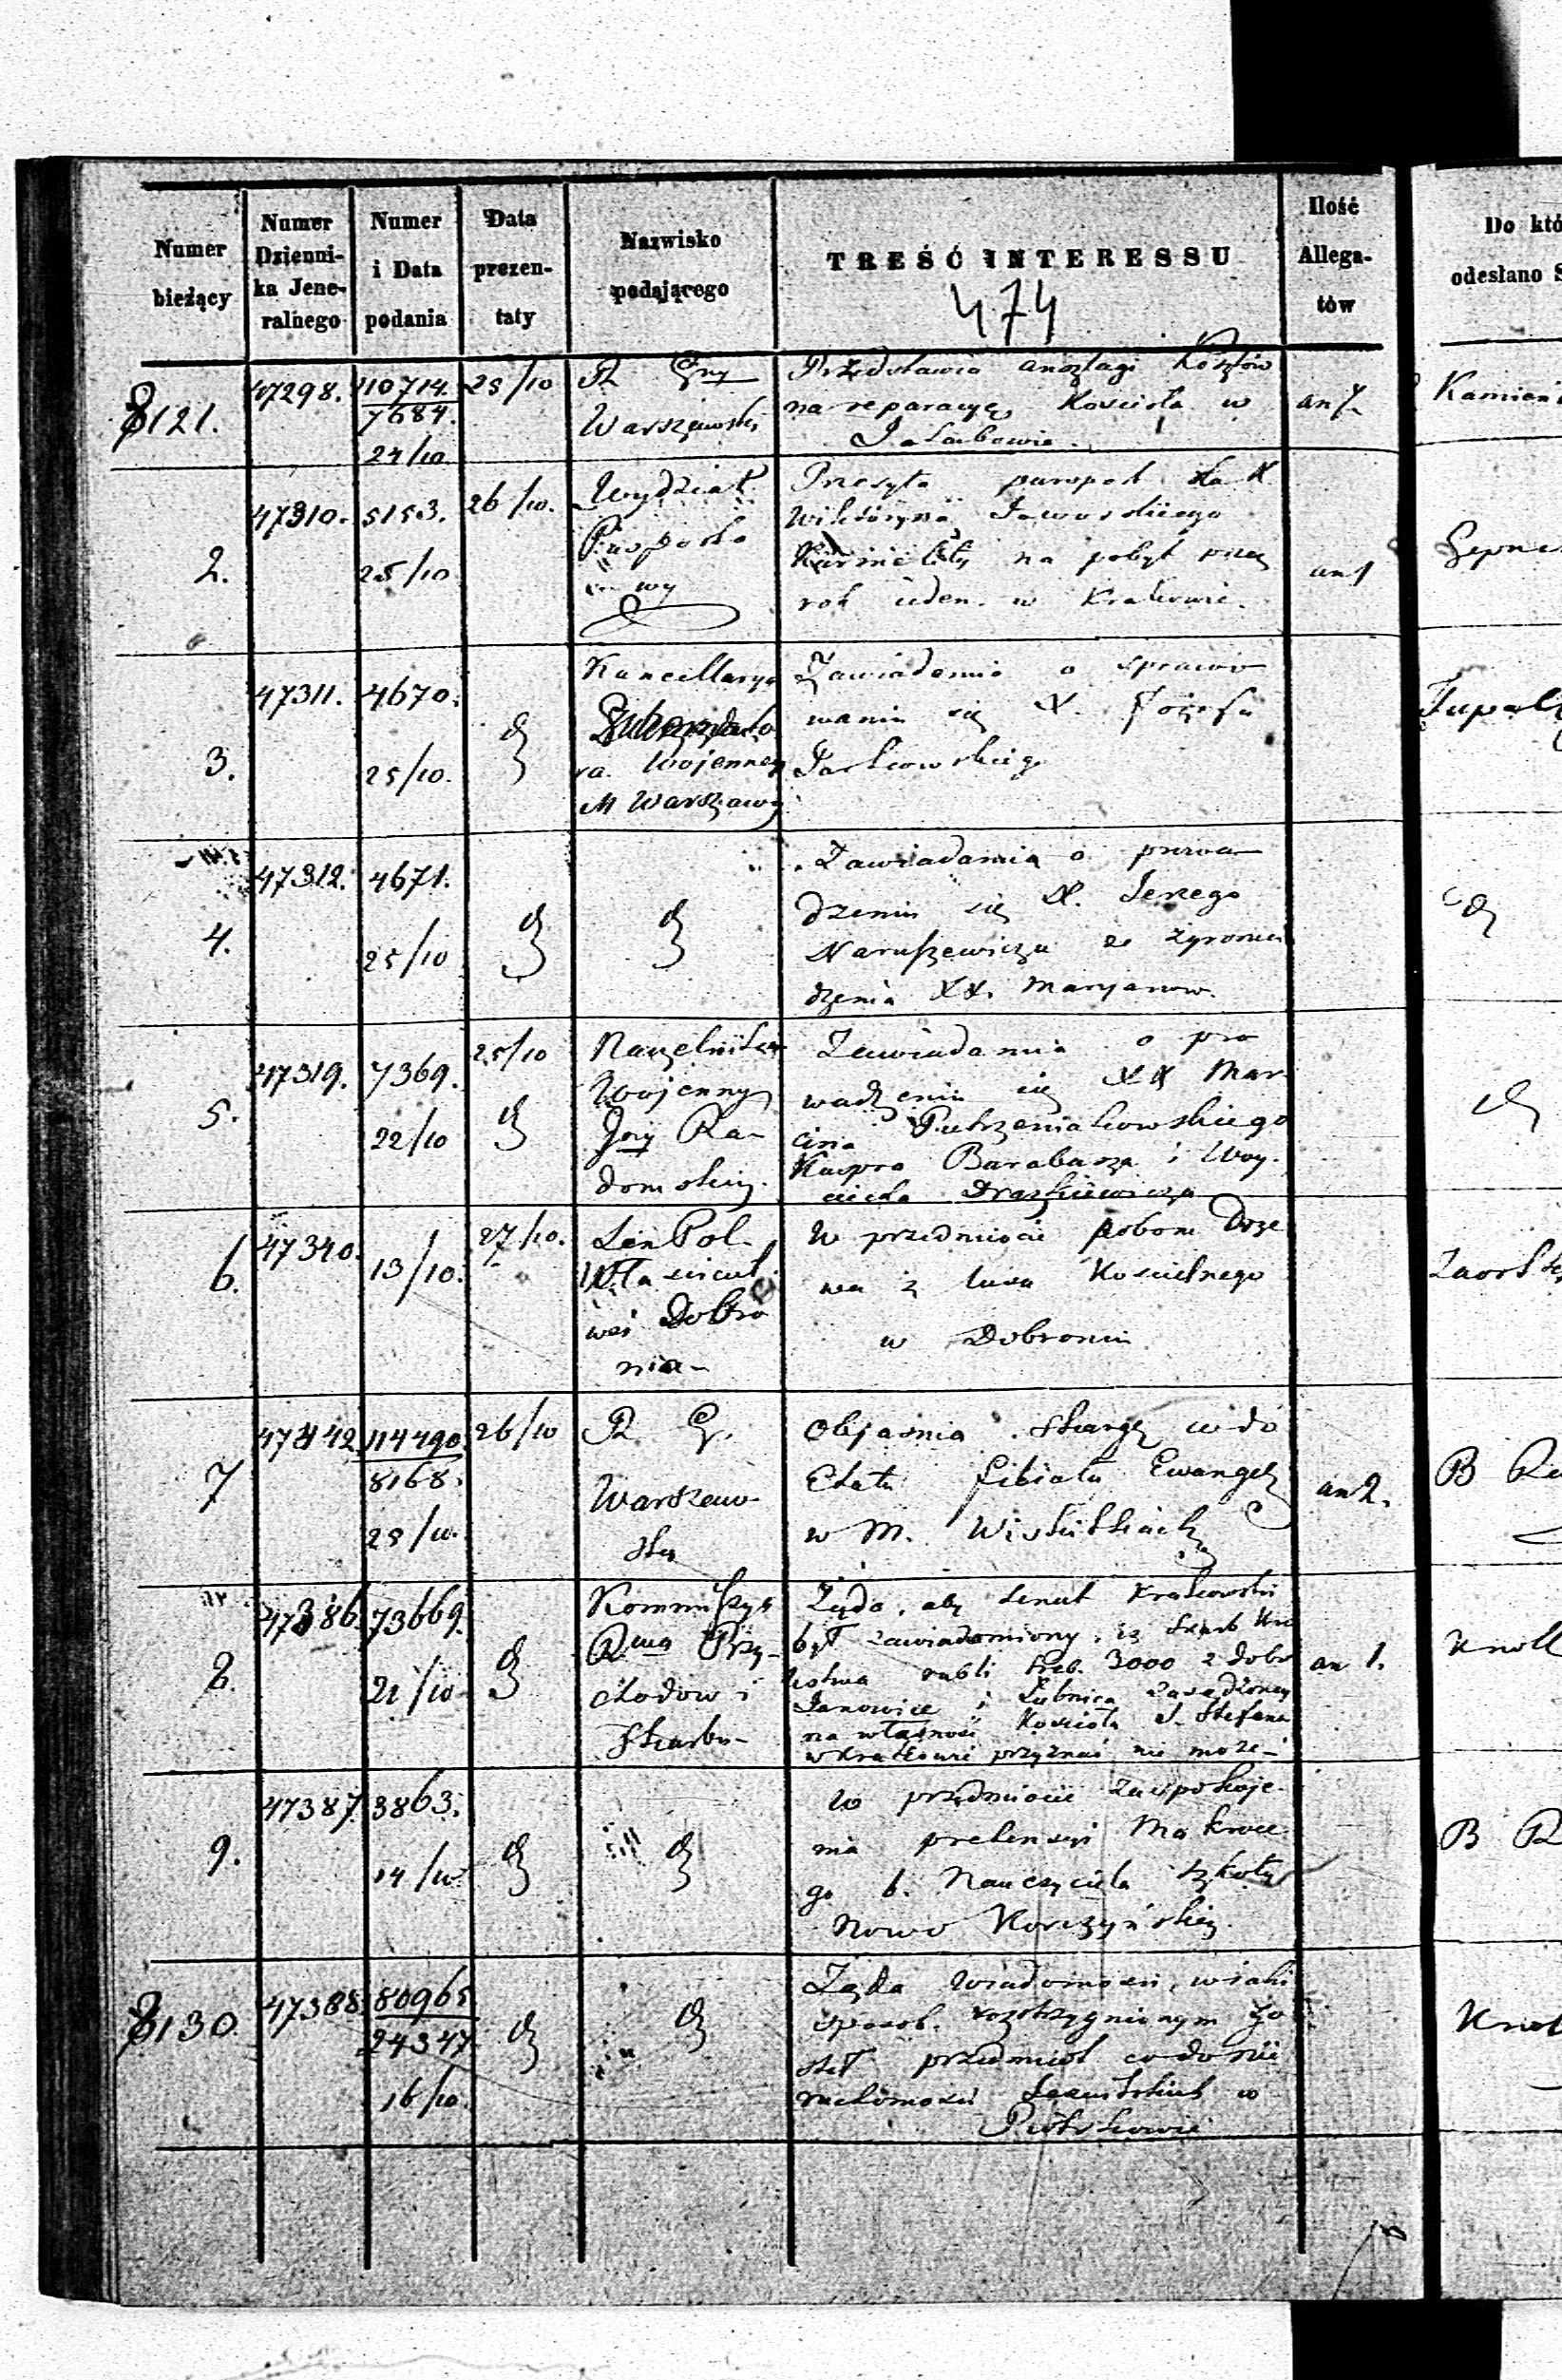 Numer bieżący
Numer Dzienni-ka Jene-ralnego
Numer i Data podania
Data prezen-taty
Nazwisko podającego
TREŚĆ INTERESSU
474
Ilość Allega-tów
Do któ
odesłano S
8121.
47298.
110714.
7684.
24/10
25/10
R Gny
Warszawski
Przedstawia anszlagi kosztów
na reparacyę Kościoła w
an 7.
Kamień
2.
47310.
5153.
25/10
26/10.
Wydział
Paszporto
wy
Przesyła paszport dla X
Wiktoryna Jaworskiego
Karmelity na pobyt przez
rok ieden w Krakowie.
an 1
3.
47311.
4670.
25/10.
d
Kancellarya
ra Wojennego
M Warszawy
Zawiadamia o sprawo
waniu się X. Józefa
4.
47312.
4671.
25/10
d
d
Zawiadamia o prowa
dzeniu się X. Jerzego
Naruszewicza ze zgroma
dzenia XX. Maryanow.
d
5.
47319.
7369.
22/10
25/10
d
Naczelnik
Wojenny
Gny Ra-
domskiej
Zawiadamia o pro
wadzeniu się XX Mar
cina
Kaspra Barabasza i Woy.
ciecha
d
6.
47340.
13/10.
27/10.
Len Pol.
Właściciel
wsi Dobro
nia-
W przedmiocie poboru Drze
wa z lasu Kościelnego
w Dobroniu
7
47342
114490.
8168.
25/10.
26/10
R G.
Warszaw-
ski
Objaśnia skargę co do
Etatu filiału Ewangel
w M. Wiskitkach
an 2.
B
8.
47386.
73669.
21/10
d
Kommissya
Rwa Przy-
chodow i
Skarbu-
Żąda, aby Senat Krakowski
był zawiadomiony, iż Skarb Kró
lestwa rubli sreb. 3000 z dobr
Janowice i Łubnica zasądzoney
na własność Kościoła S. Stefana
w Krakowie przyznać nie może-
an 1.
Knoll
9.
47387.
3863.
14/10
d
d
W przedmiocie zaspokoje
nia pretensyi Makowe
go b. Nauczyciela Szkoły
Nowo Korczyńskiej.
B R
8130.
47388
80965
24347
16/10.
d
d
Żąda wiadomości, w iaki
sposob rozstrzygnionym zo
stał przedmiot co do nie
ruchomości w
Piotrkowie